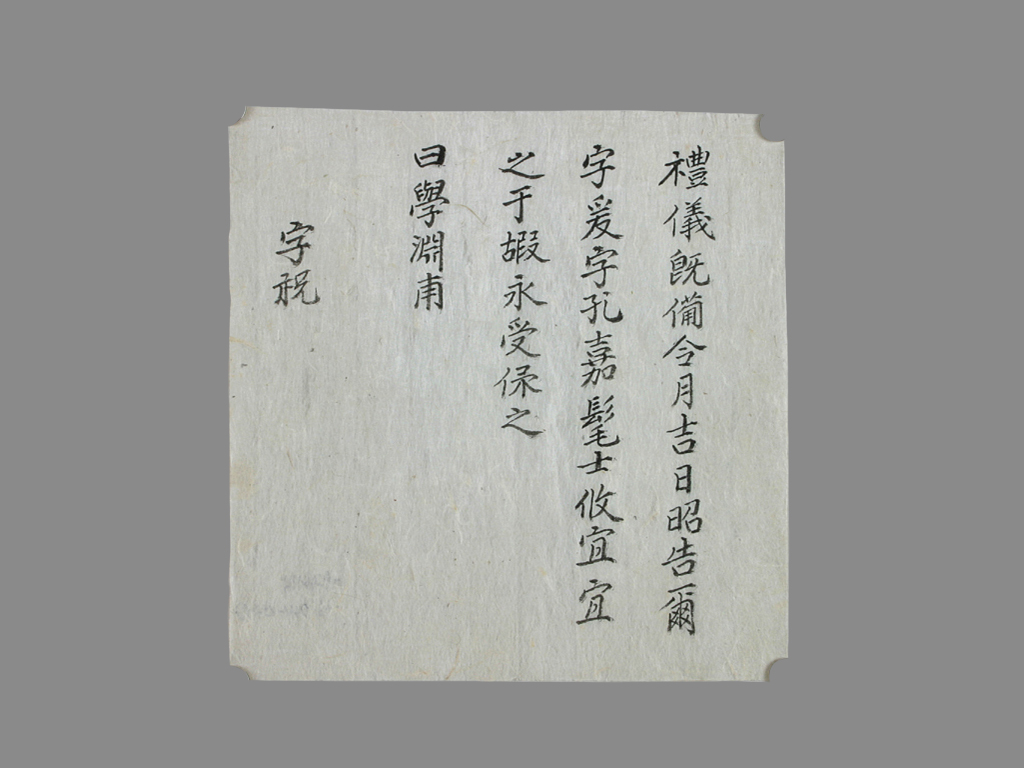 禮儀既備令月吉日昭告爾
字爰字孔嘉髦士攸宜宜
之于嘏永受保之
曰學淵甫
字祝